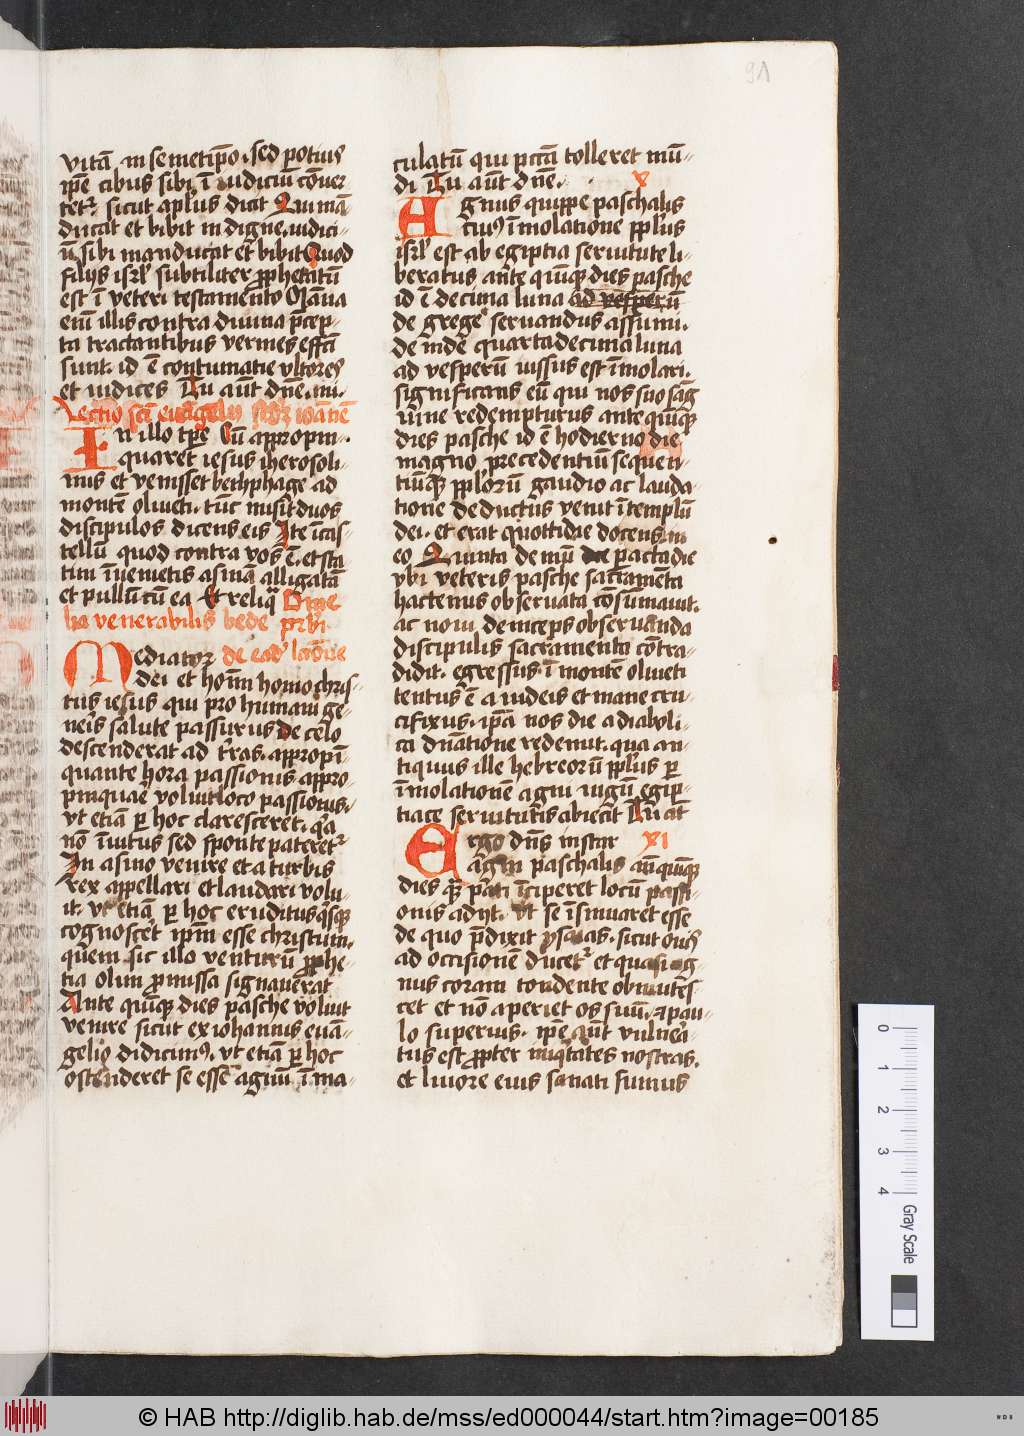 91
vitā in semetip̄o. sed potius
ip̄e cibus sibi ī iudiciū cōuer
tet᷑. sicut apl̄us dicit Qui mā
ducat et bibit indigne. iudici-
ū sibi manducat et bibit Quod
filijs isrl̄ subtiliter prophetatū
est ī veteri testamento Māna
eīn illis contra diuina p̄cep-
ta tractantibus vermes effc̄i
sunt. id ē contumatie vltores
et iudices Tu aūt dn̄e. mi.
Lectio sc̄i euāgelij scd̄z ioānē
In illo tp̄e Cū appropin-
quaret iesus iherosoli-
mis et venisset bethphage ad
montē oliueti. tūc misit duos
discipulos dicens eis Ite ī cas-
tellū quod contra vos ē. et sta
tim īuenietis asinā alligatā
et pullū cū ea Et reliq̄ Ome
lia venerabilis bede pr̄bi
Mediator de ead᷑ lc̄ōne
dei et hoīm homo chris-
tus iesus qui pro humani ge-
neīs salute passurus de celo
descenderat ad tr̄as. appropī-
quante hora passionis appro-
pinquare voluit loco passionis.
vt etiā p hoc claresceret. qa
nō īuitus sed sponte pateret᷑
In asino venire et a turbis
rex appellari et laudari volu-
it. vt etiā p hoc eruditus qsq
cognoscēt ip̄m esse christum.
quem sic illo venturū prophe-
tia olim promissa signauerat
Ante quīque dies pasche voluit
venire sicut ex iohannis euā-
gelio didicimus. vt etiā p hoc
ostenderet se esse agnū īma-
culatū qui pctā tolleret mū-
di Tu aūt dn̄e. X
Agnus quippe paschalis
cuius īmolatione ppl̄us
isrl̄ est ab egiptia seruitute li-
beratus ante quīque dies pasche
id ē decima luna ad vesperū
de grege seruandus assumi.
de inde quartadecima luna
ad vesperū iussus est īmolari.
significans eū qui nos suo sāg
uine redempturus ante quīque
dies pasche id ē hodierno die
magno precedentiū sequen-
tiūque pplorū gaudio ac lauda-
tione deductus venit ī templū
dei. et erat quottidie docens in
eo Quinta demū die pacta die
vbi veteris pasche sacramēta
hactenus obseruata cōsūmauit.
ac noui deinceps obseruanda
discipulis sacramenta cōtra-
didit. egressus ī montē oliueti
tentus ē a iudeis et mane cru-
cifixus. ip̄a nos die a diaboli-
ca dn̄atione redemit. qua an-
tiquus ille hebreorū ppl̄us p
īmolationē agni iugū egip-
tiace seruitutis abiecit Tu aūt
Ergo dn̄s instar XI
agni paschalis an̄ quīque
dies q̄ p̄ati īciperet locū passi-
onis adijt. vt se īsinuaret esse
de quo p̄dixit ysaias. sicut ouis
ad occisionē ducet᷑ et quasi ag-
nus coram tondente obmutes
cet et nō aperiet os suū. et pau-
lo superius. ip̄e aūt vulnera
tus est propter iniqtates nostras.
et liuore eius sanati sumus
0 1 2 3 4
Gray Scale
© HAB http://diglib.hab.de/mss/ed000044/start.htm?image=00185